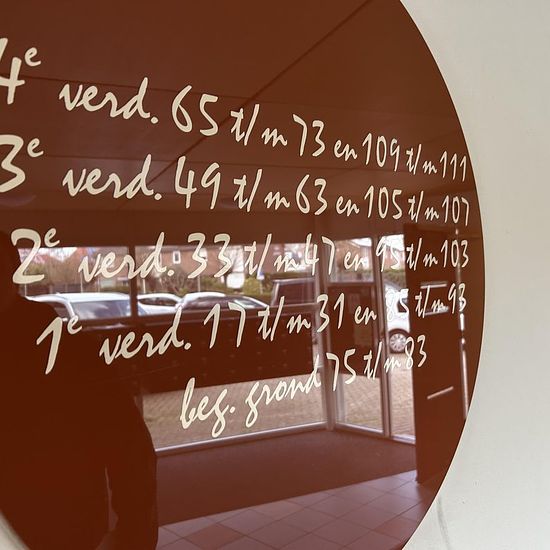 4e verd. 65 t/m 73 en 109 t/m 111
3e verd. 49 t/m 63 en 105 t/m 107
2e verd. 33 t/m 47 en 95 t/m 103
1e verd. 17 t/m 31 en 85 t/m 93
beg. grond 75 t/m 83